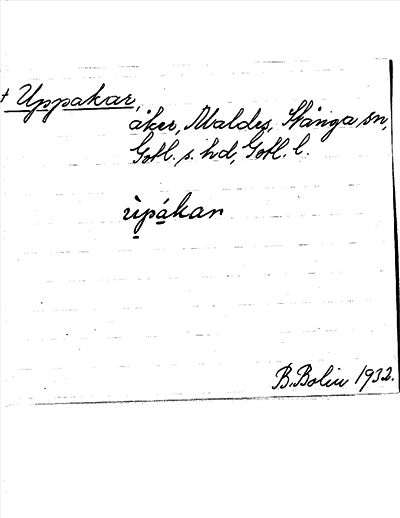 † Uppakar,
åker, Maldes, Stånga sn,
Gotl. s. hd, Gotl. l.
ùpákan
B. Bolin 1932.